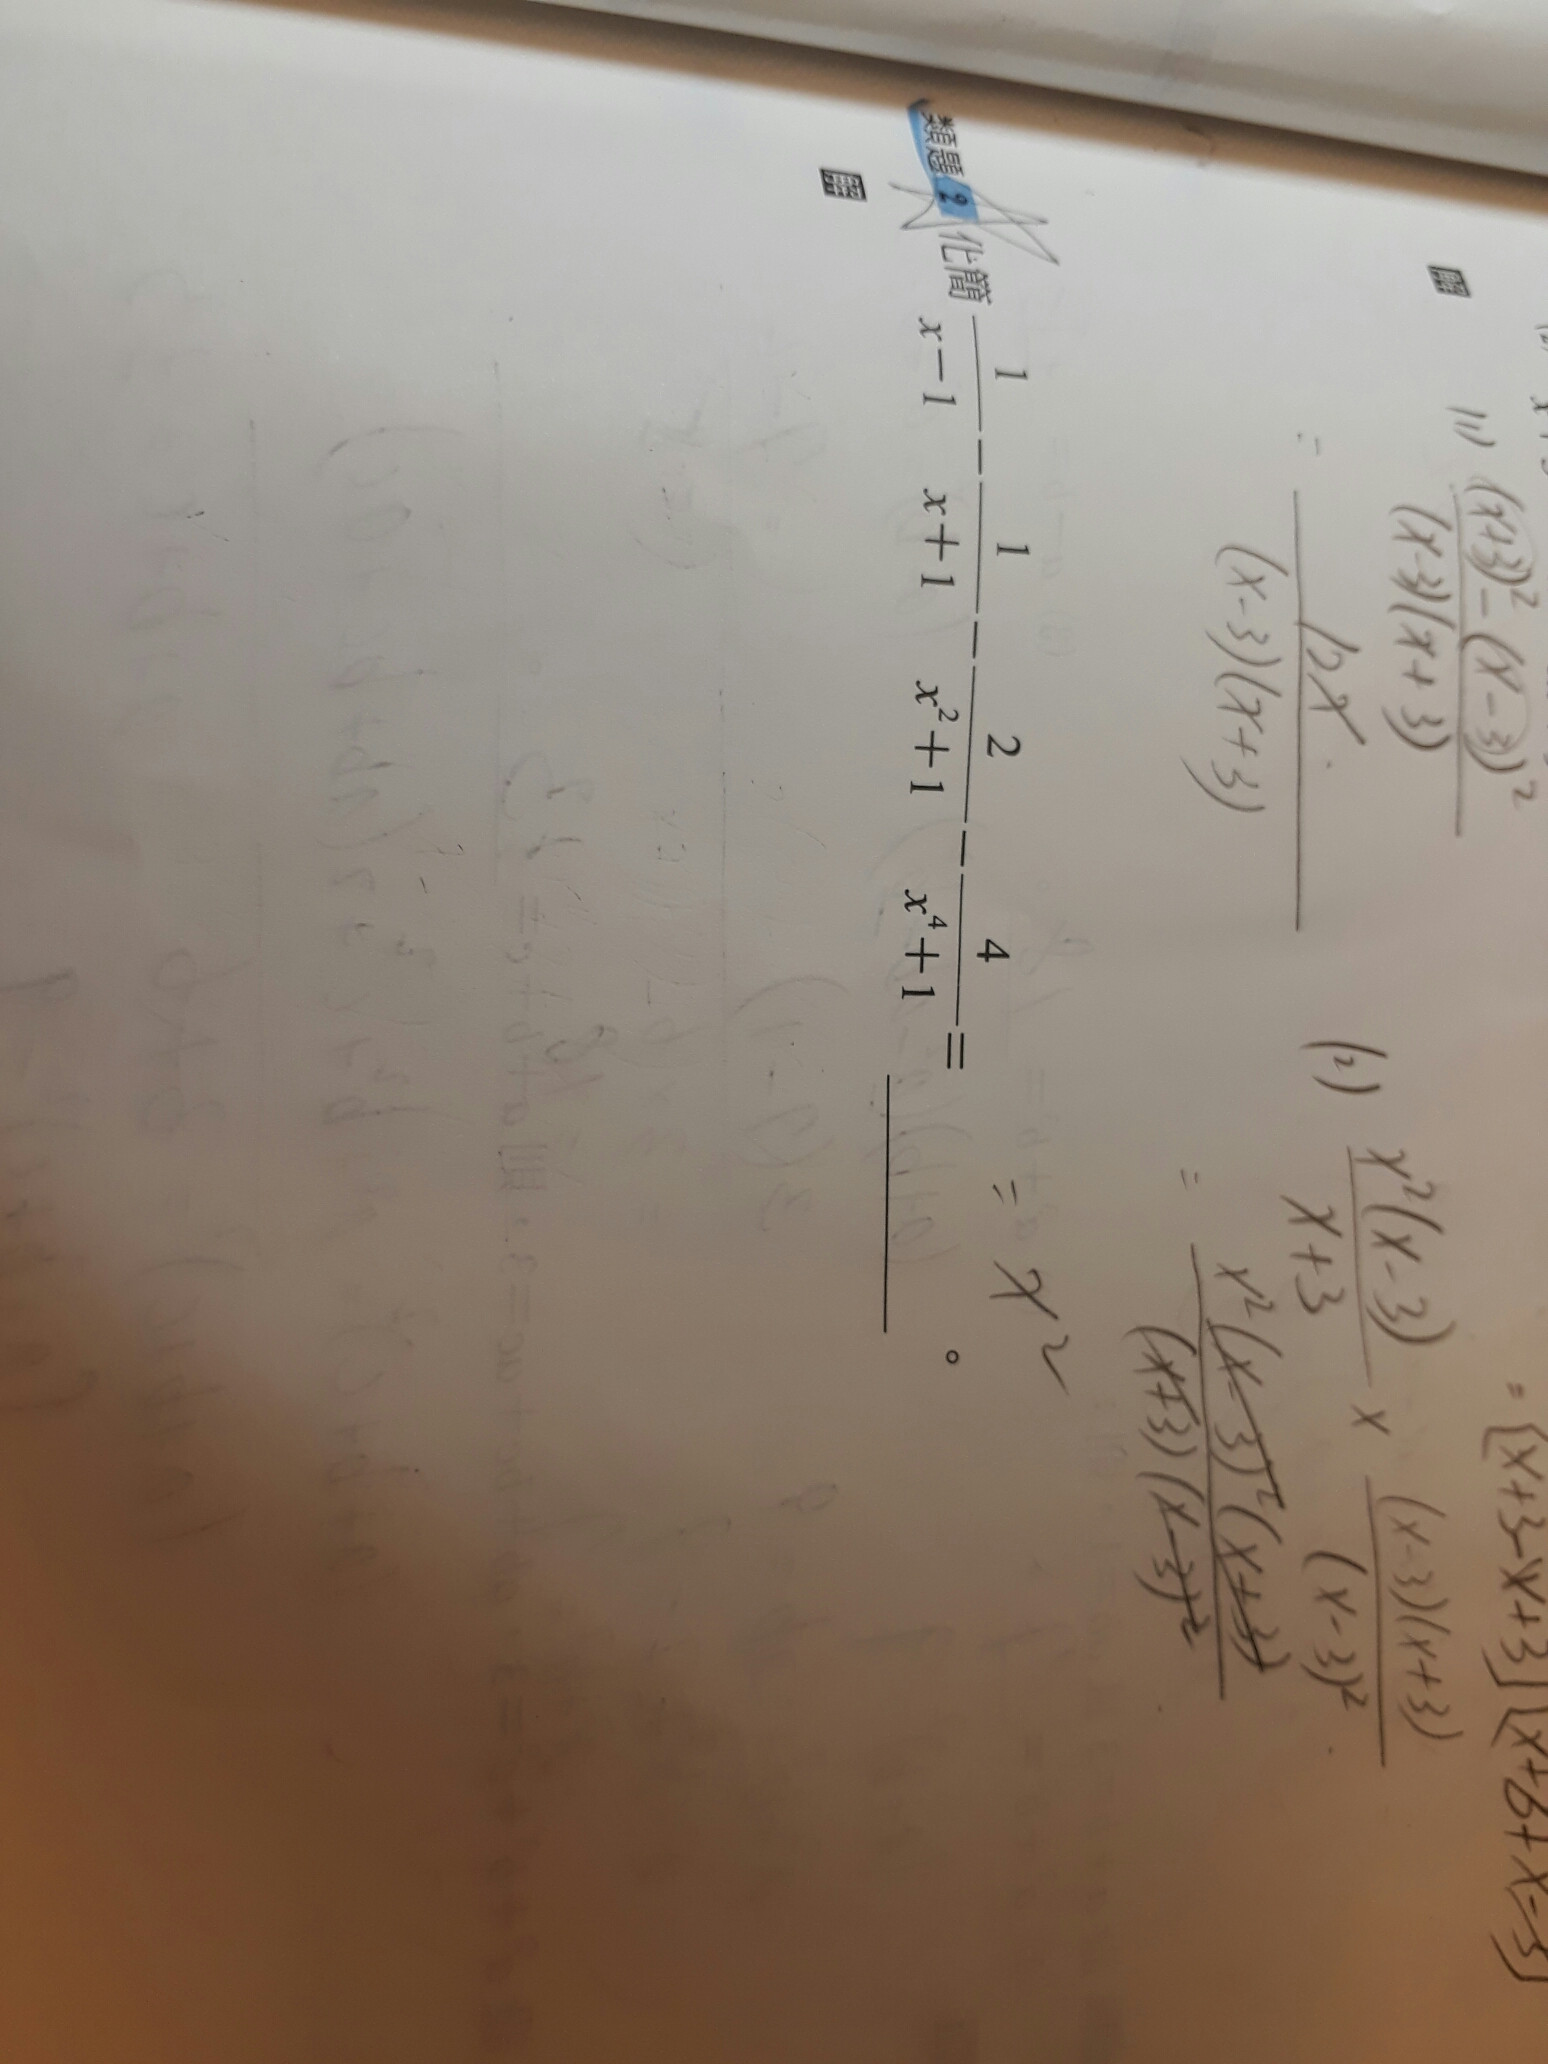 = [x+3-x+3][x+3+x-3]
(1) \frac{(x+3)^2-(x-3)^2}{(x-3)(x+3)}
= \frac{12x}{(x-3)(x+3)}
(2) \frac{x^2(x-3)}{x+3} × \frac{(x-3)(x+3)}{(x-3)^2}
= \frac{x^2(x-3)^2(x+3)}{(x+3)(x-3)^2}
= x^2
類題2 化簡 \frac{1}{x-1} - \frac{1}{x+1} - \frac{2}{x^2+1} - \frac{4}{x^4+1} = ______ 。
解